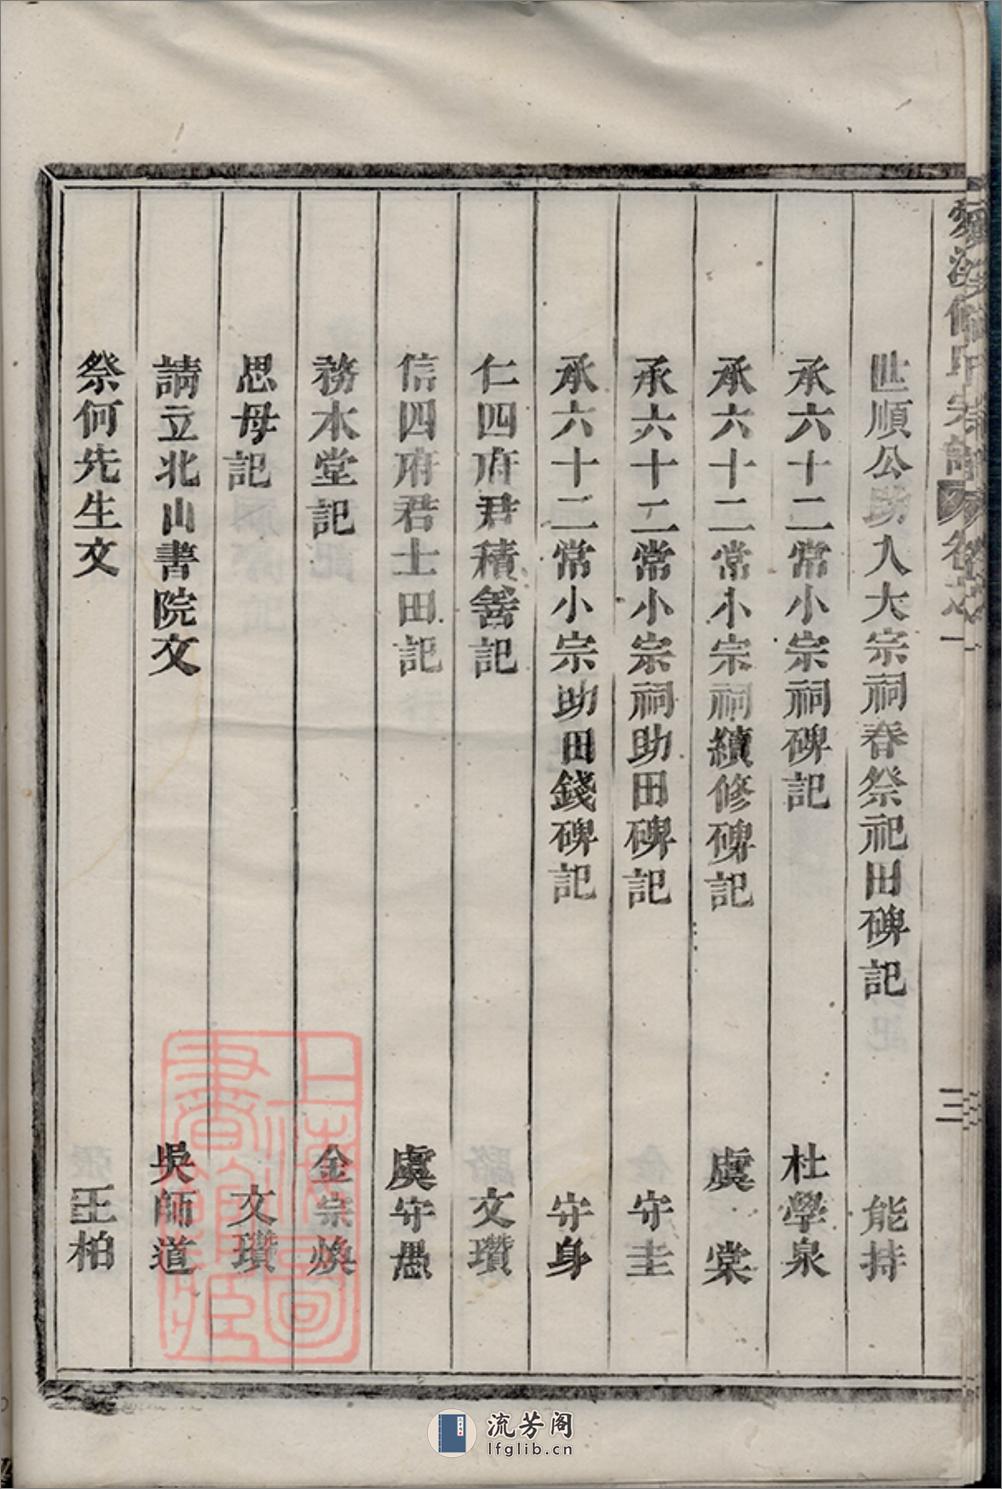 世順公助入大宗祠春祭祀田碑記 能持
承六十二常小宗祠碑記 杜學泉
承六十二常小宗祠續修碑記 虞棠
承六十二常小宗祠助田碑記 守圭
承六十二常小宗助田錢碑記 守身
仁四府君積善記 文瓚
信四府君士田記 虞守愚
務本堂記 金宗煥
思母記 文瓚
請立北山書院文 吳師道
祭何先生文 王柏
三
上海圖書館藏
流芳阁
lfglib.cn